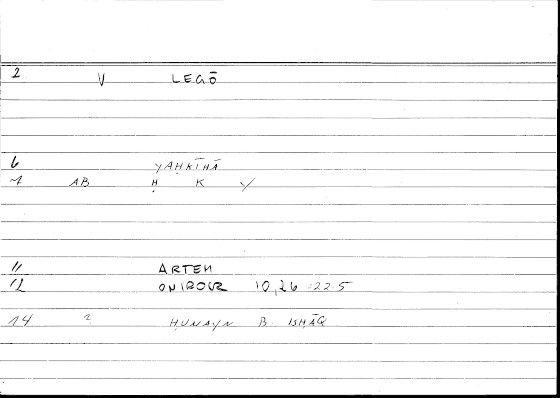 2 V LEGŌ
6 YAḤKĪHĀ
7 AB Ḥ K Y
11 ARTEM
12 ONIROCR 10,26 :22.5
14 2 ḤUNAYN B. ISḤĀQ